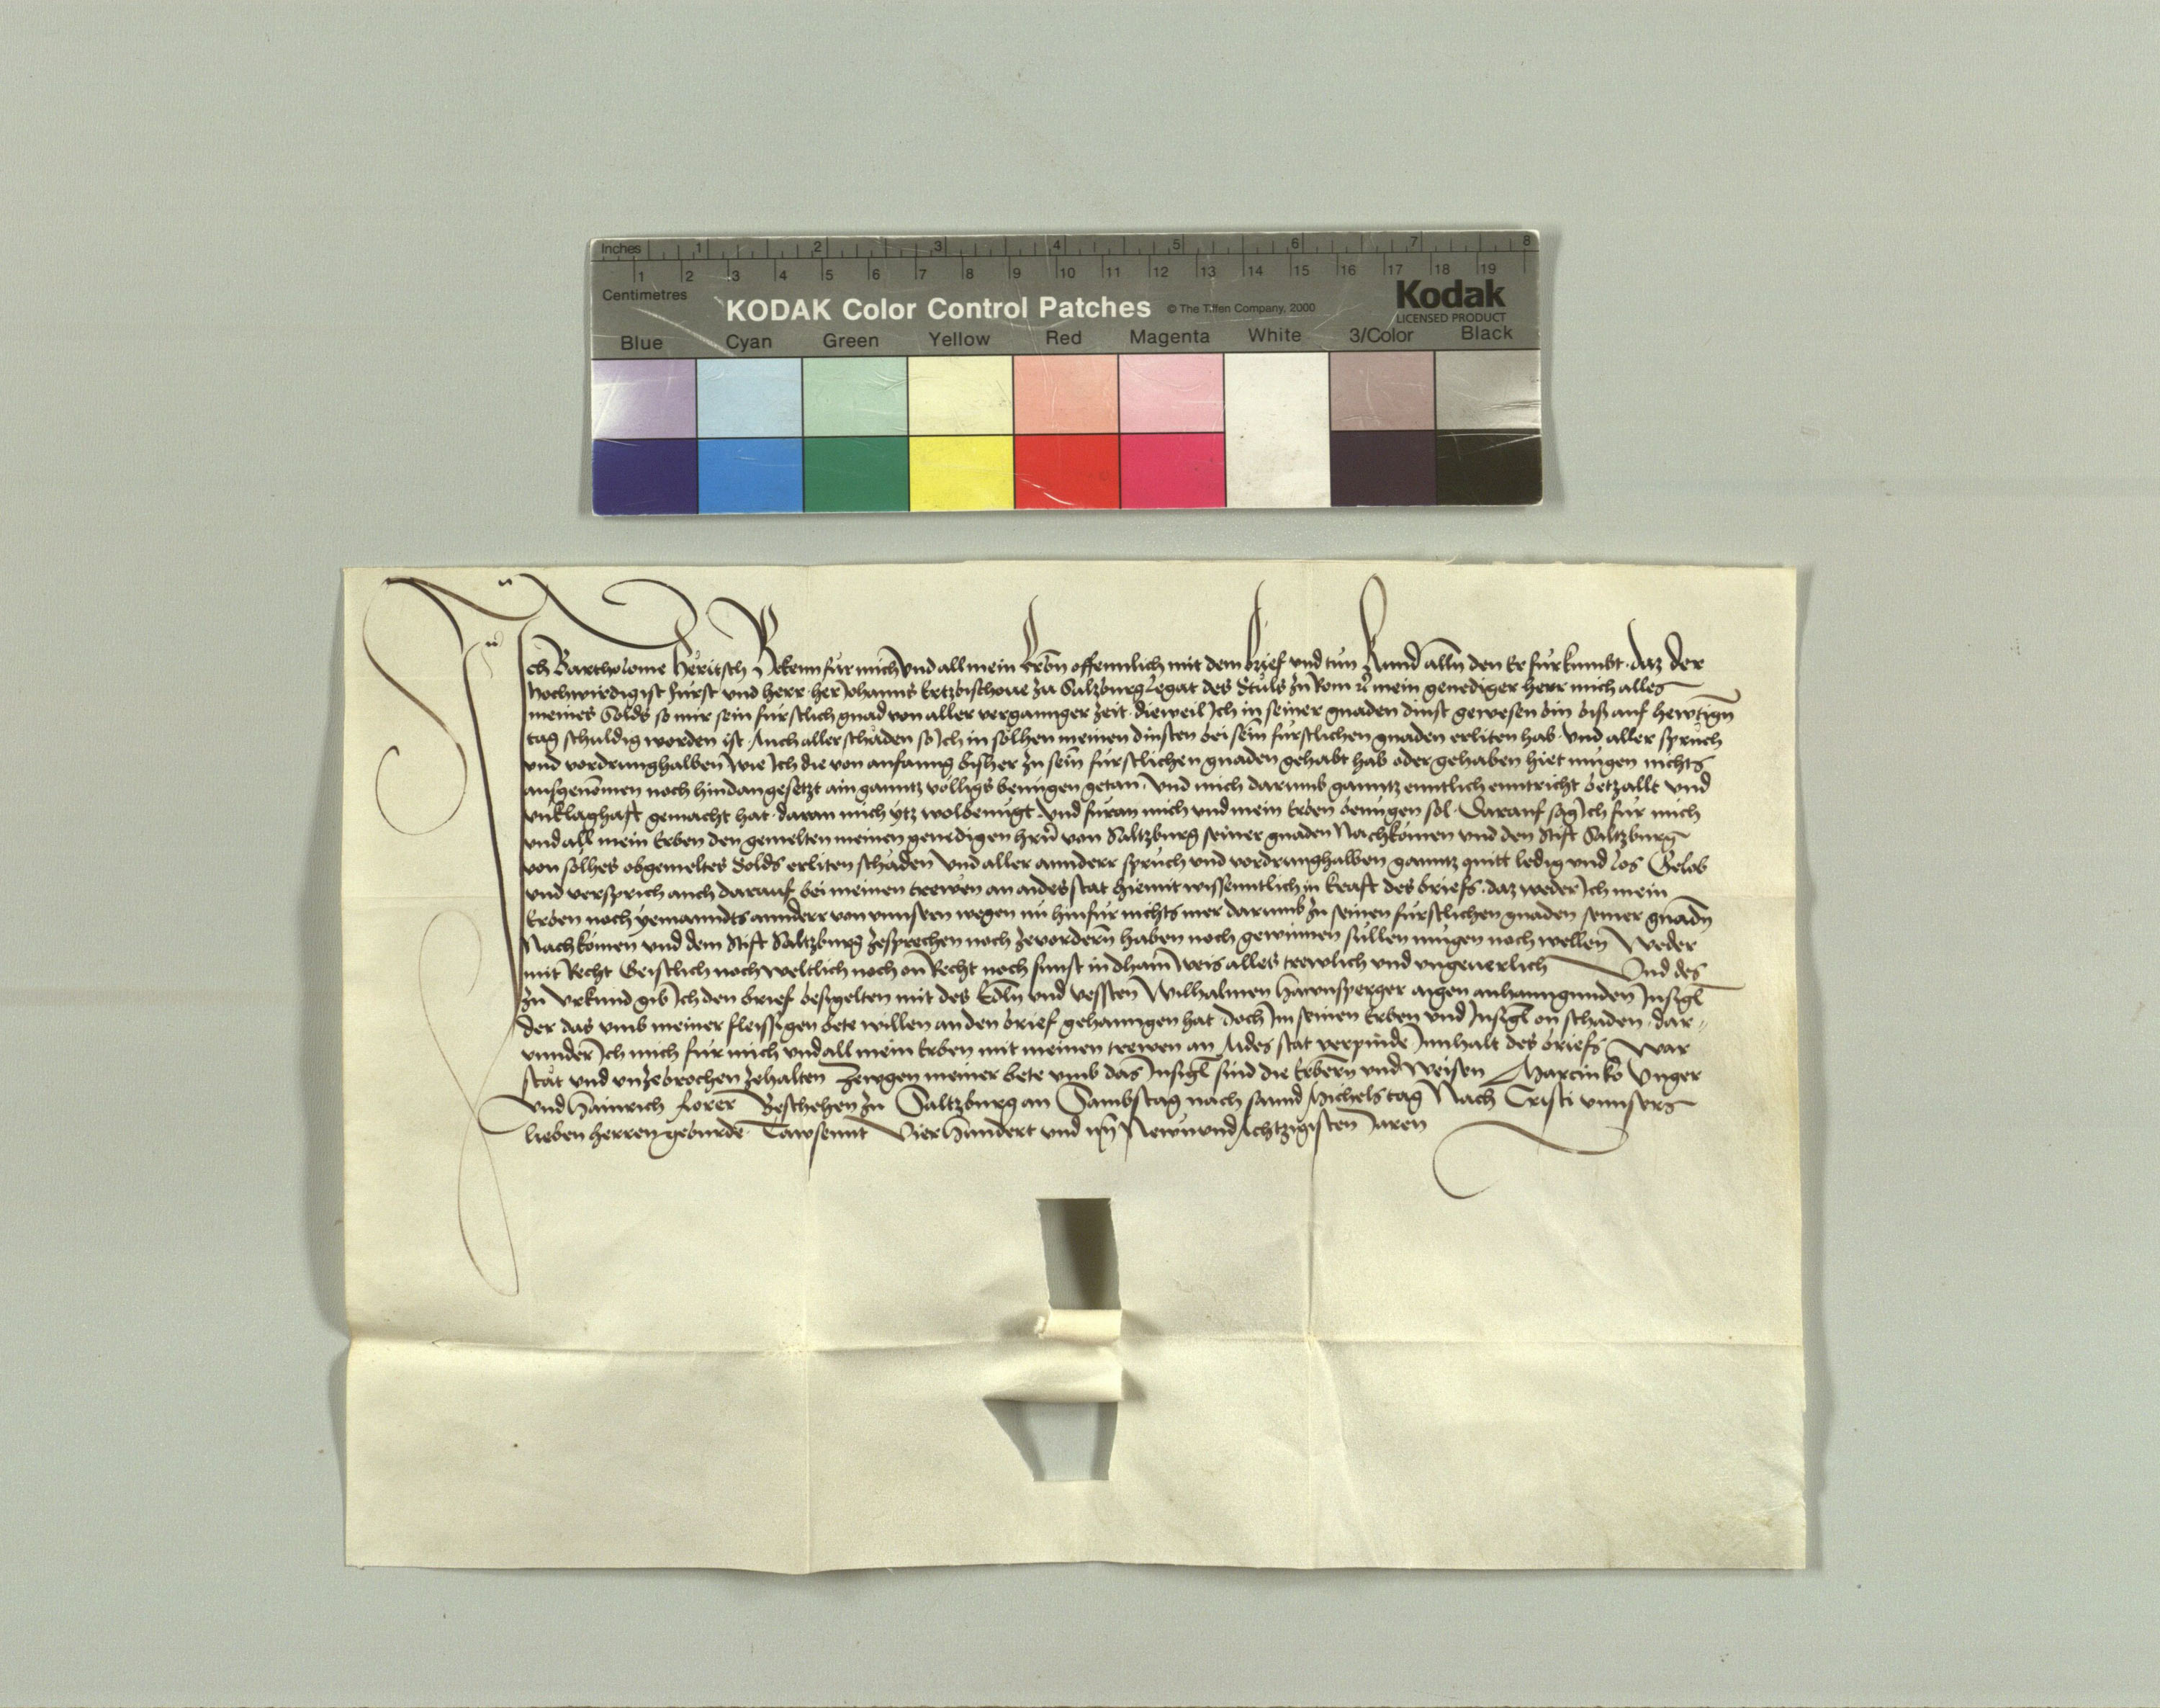 Inches 1 2 3 4 5 6 7 8
1 2 3 4 5 6 7 8 9 10 11 12 13 14 15 16 17 18 19
Centimetres
KODAK Color Control Patches © The Tiffen Company, 2000 Kodak
LICENSED PRODUCT
Blue Cyan Green Yellow Red Magenta White 3/Color Black
Ich Bartholome Heritsch Bekenn fur mich und all mein Erbn offennlich mit dem brief und tun kund alln den Er furkumbt. daz der
hochwirdigist furst und herr her Johanns Ertzbischove zu Salzburg Legat des Stuls zu Rom mein genediger herr mich alles
meines Solds so mir sein furstlich gnad von aller verganger zeit dieweil Ich in seiner gnaden dinst gewesen bin bis auf hewtign
tag schuldig worden ist. Auch aller schäden so Ich in solhen meinen dinsten bei sein furstlichen gnaden erliten hab. und aller spruch
und vordrunghalben wie Ich die von anfanng bisher zu sein furstlichen gnaden gehabt hab oder gehaben hiet mugen nichts
ausgenomen noch hindangesetzt ain ganntz volligs benugen getan. und mich darumb ganntz enntlich enntricht betzallt und
unklaghaft gemacht hat. daran mich ytz wolbenugt und furan mich und mein Erben benugen sol. Darauf sag Ich fur mich
und all mein Erben den gemelten meinen genedigen hrn von Saltzburg seiner gnaden Nachkomen und den Stift Saltzburg
von solhes obgemeltes Solds erliten schaden und aller annderr spruch und vordrunghalben ganntz quitt ledig und los Gelob
und versprich auch darauf bei meinen trewen an aides stat hiemit wissenntlich in kraft des briefs. daz weder Ich mein
Erben noch yemanndts annderr von unnsern wegen nu hinfur nichts mer darumb zu seinen furstlichen gnaden seiner gnadn
Nachkomen und dem Stift Saltzburg zesprechen noch zevordern haben noch gewinnen sullen mugen noch wellen Weder
mit Recht Geistlich noch weltlich noch on Recht noch sunst in dhain weis alles trewlich und ungeverlich Und des
zu Urkund gib Ich den brief besigelten mit des Edln und vessten Wilhalmen Hawnsperger aigen anhanngunden Insigl
der das umb meiner fleissigen bete willen an den brief gehanngen hat doch Im seinen Erben und Insigl on schaden. dar
unnder Ich mich fur mich und all mein Erben mit meinen trewen an Aides stat verpinde Innhalt des briefs War
stät und unzebrochen zehalten Zewgen meiner bete umb das Insigl sind die Erbern und Weisen Marcinko Unger
und Hainrich forer Beschehen zu Saltzburg an Sambstag nach sannd Michels tag Nach Cristi unnsers
lieben herren geburde Tawsennt Vierhundert und im Newnundachtzigisten Jaren